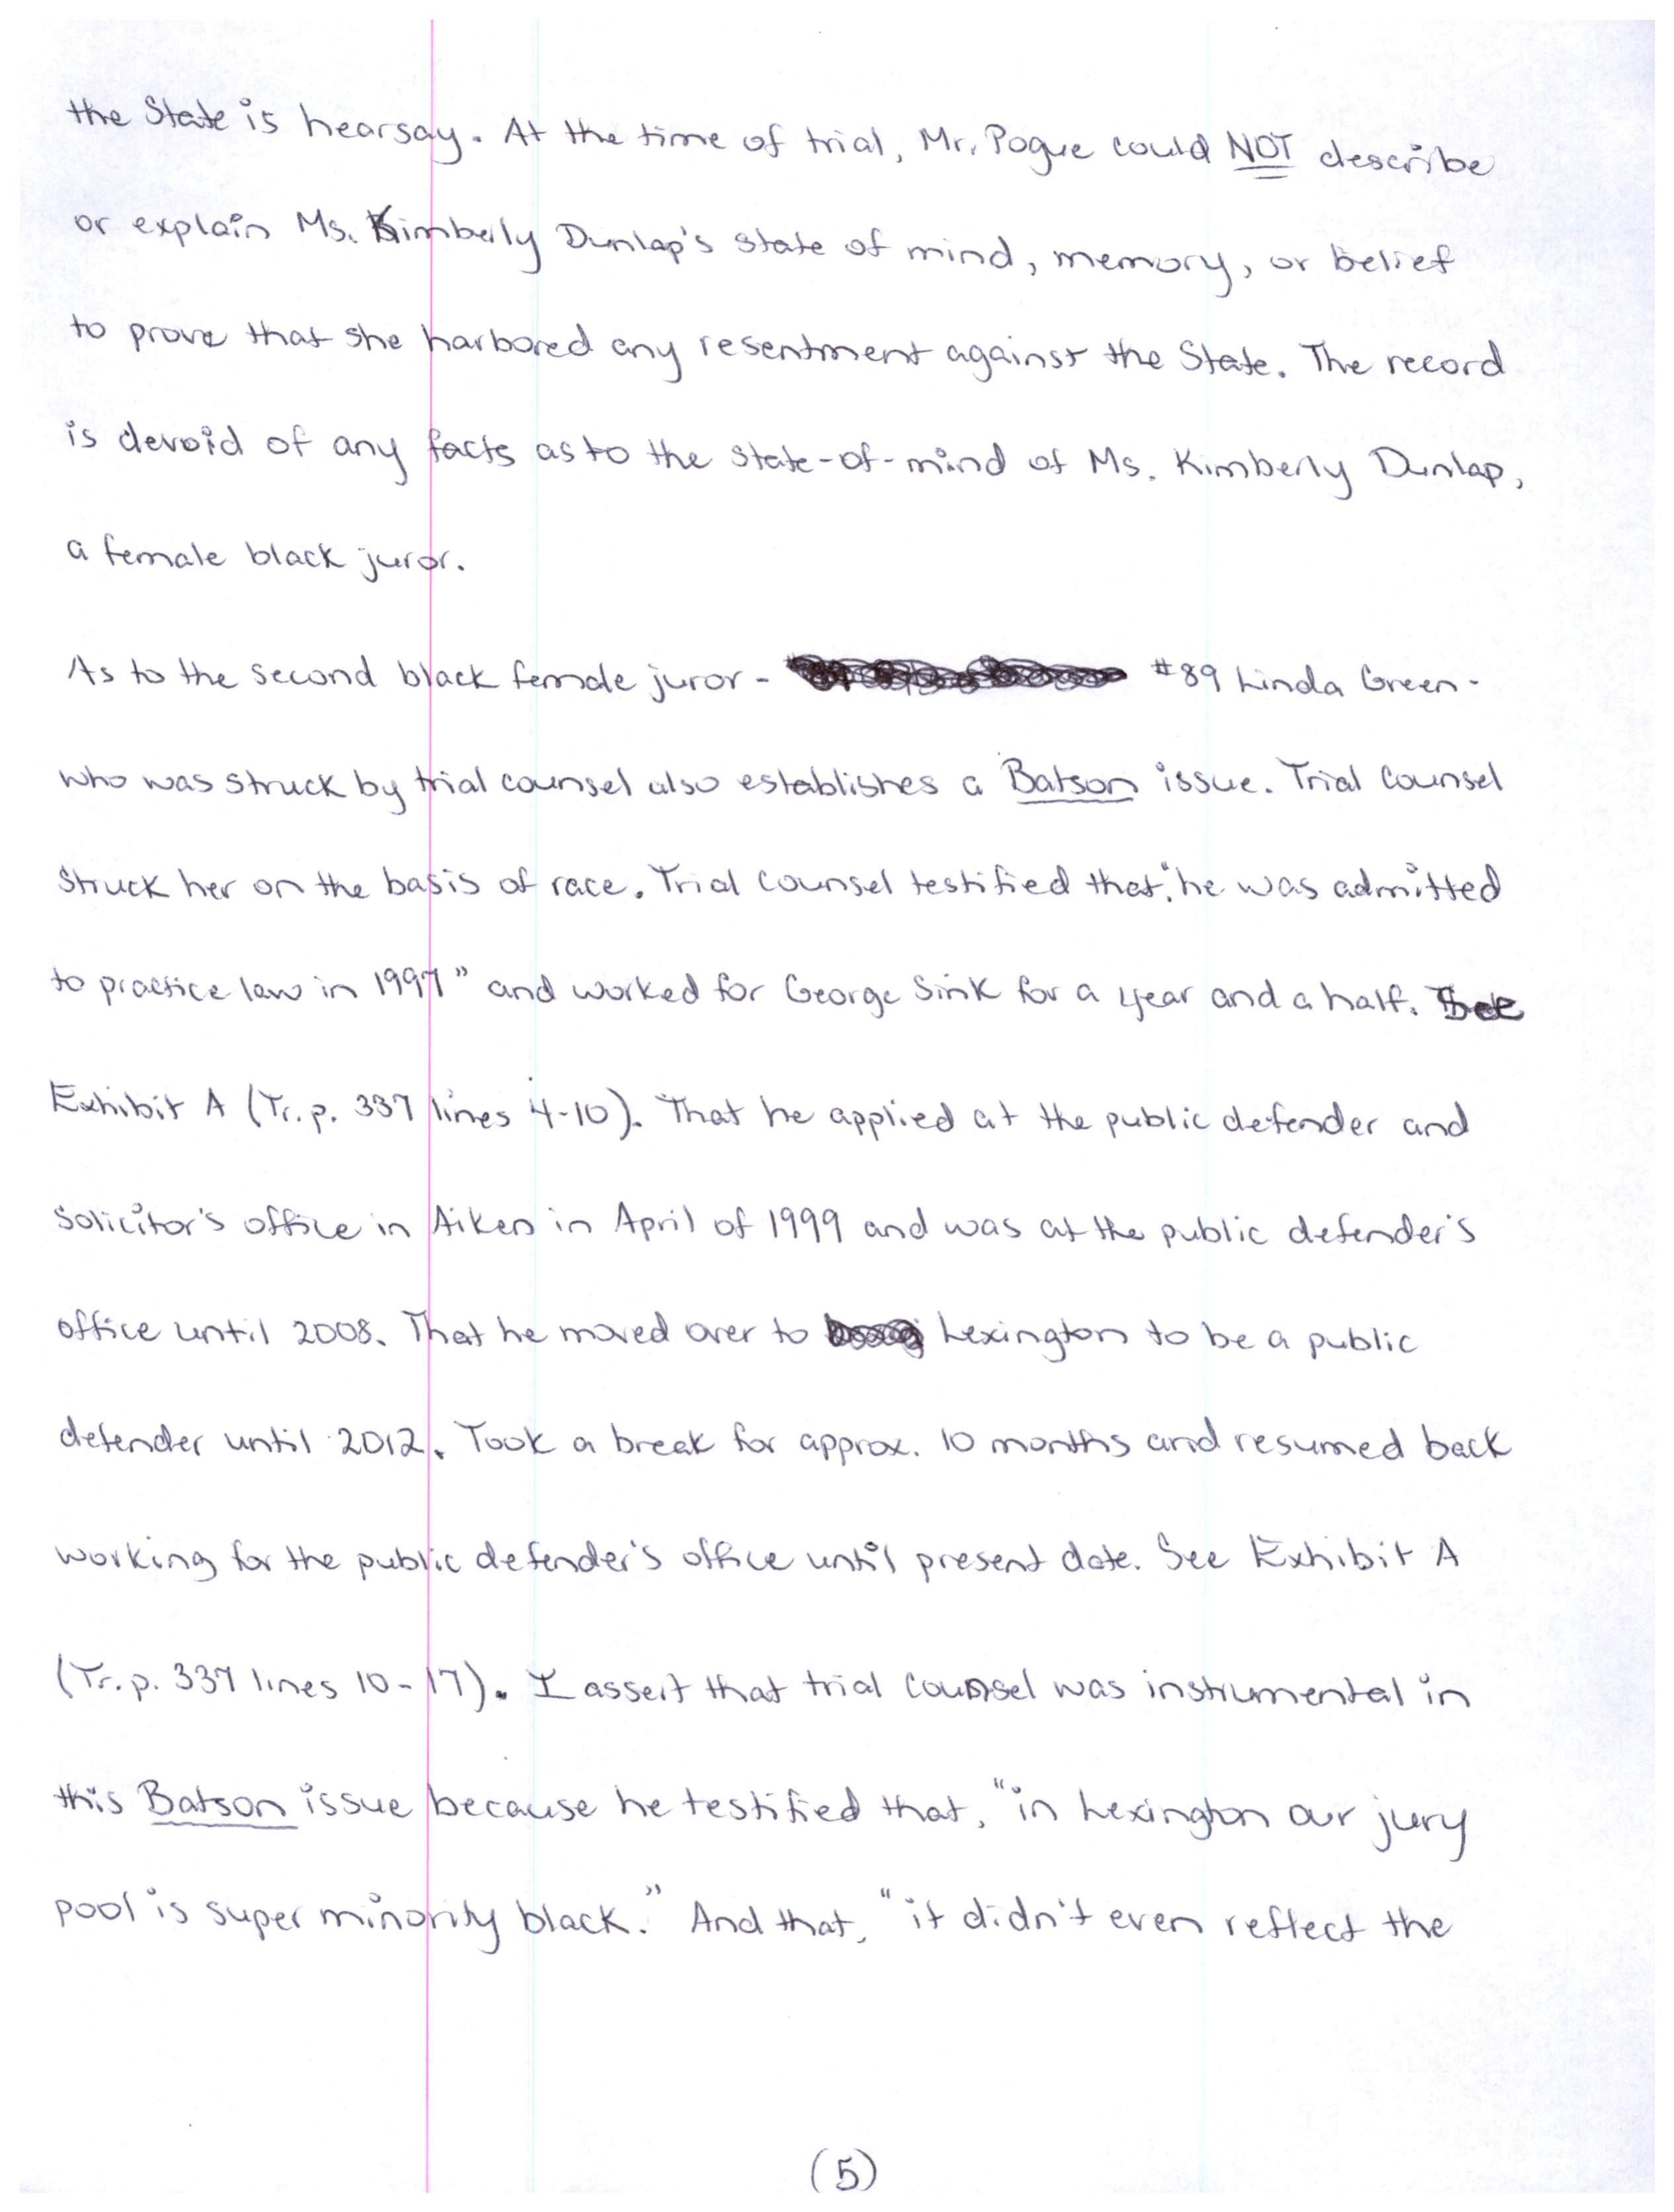 the State is hearsay. At the time of trial, Mr. Pogue could NOT describe
or explain Ms. Kimberly Dunlap's state of mind, memory, or belief
to prove that she harbored any resentment against the State. The record
is devoid of any facts as to the state-of-mind of Ms. Kimberly Dunlap,
a female black juror.
As to the second black female juror - #89 Linda Green -
who was struck by trial counsel also establishes a Batson issue. Trial Counsel
Struck her on the basis of race. Trial Counsel testified that, "he was admitted
to practice law in 1997" and worked for George Sink for a year and a half. See
Exhibit A (Tr. p. 337 lines 4-10). That he applied at the public defender and
Solicitor's office in Aiken in April of 1999 and was at the public defender's
office until 2008. That he moved over to Lexington to be a public
defender until 2012. Took a break for approx. 10 months and resumed back
working for the public defender's office until present date. See Exhibit A
(Tr. p. 337 lines 10-17). I assert that trial counsel was instrumental in
this Batson issue because he testified that, "in Lexington our jury
pool is super minority black." And that, "it didn't even reflect the
(5)